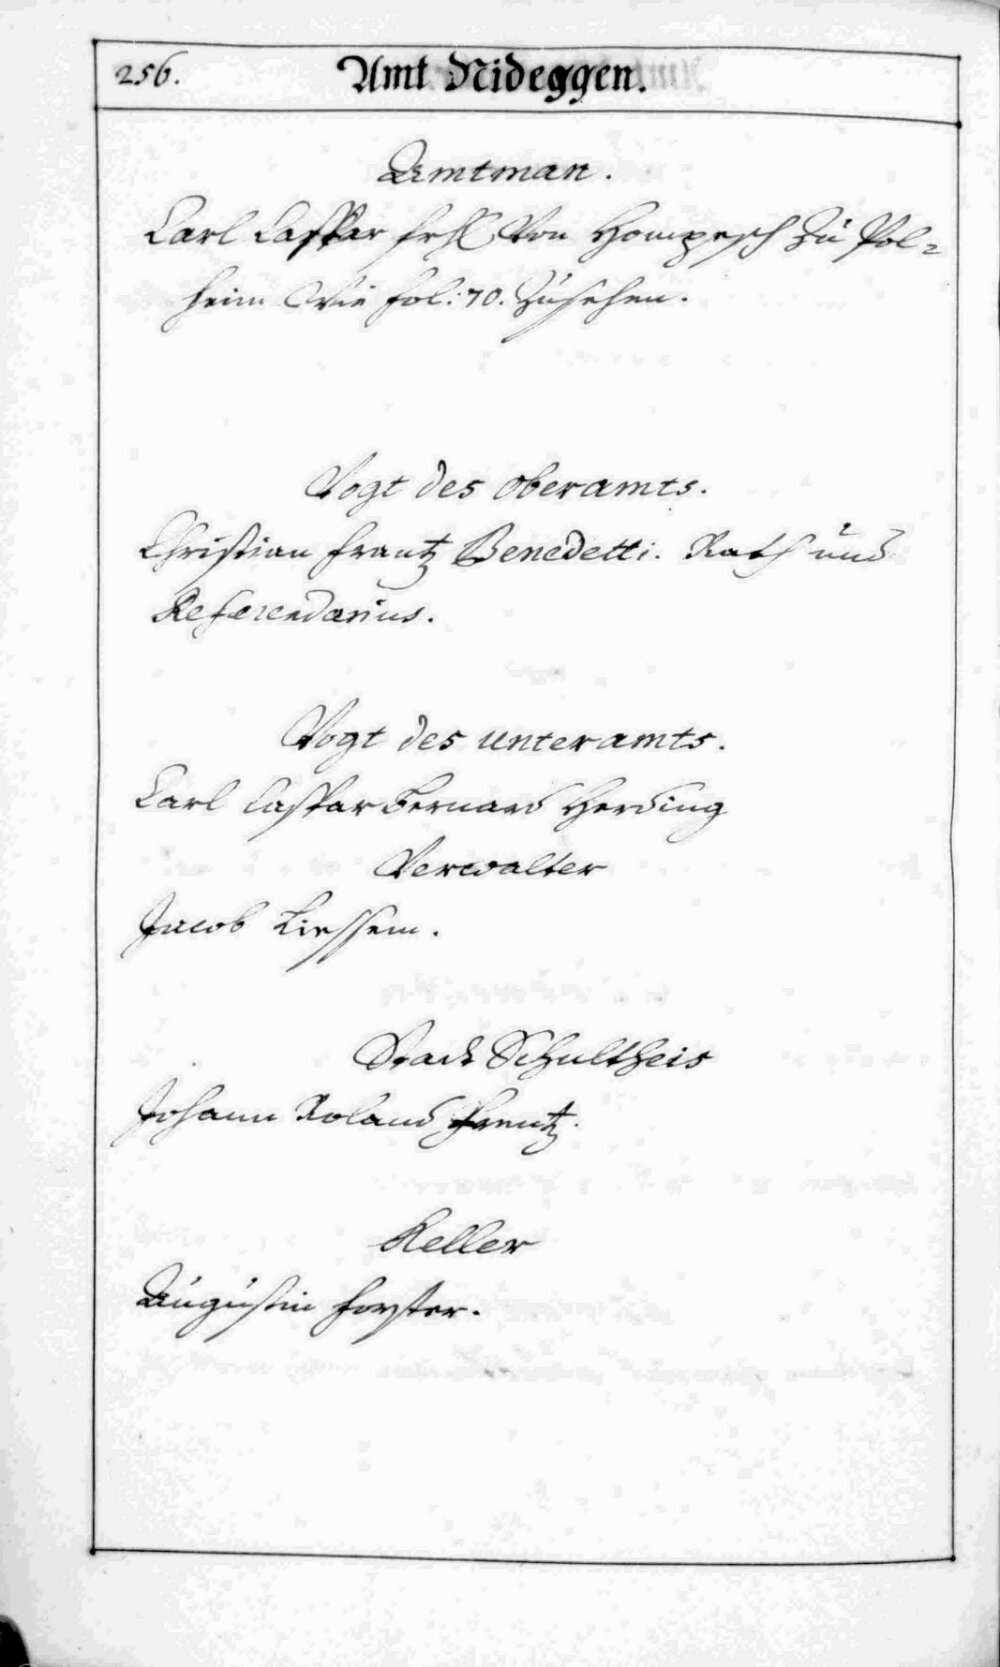 256.
Amt Nideggen.
Ambtman.
Carl Caspar frh. Von Hompesch zu Bol=
heim Wie fol: 70. Zusehen.
Vogt des oberamts.
Christian frantz Benedetti. Rath und
Referendarius.
Vogt des unteramts.
Carl Caspar Bernard Herding
Verwalter
Jacob Liessem.
Stadt Schultheis
Johann Roland frantz.
Keller
Augustin forster.